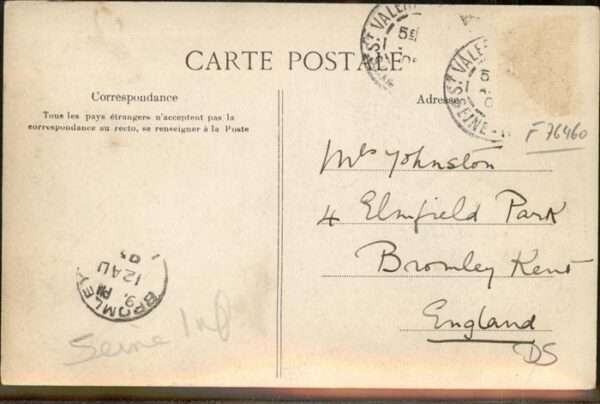 CARTE POSTALE
Correspondance
Tous les pays étrangers n'acceptent pas la
correspondance au recto, se renseigner à la Poste
Adresse
ST VALE
5E
ST VALE
5
SEINE-I
F 76460
Mrs Johnston
4 Elmfield Park
Bromley Kent
England
DS
BROMLEY
9. PM
12 AU
Seine Inf